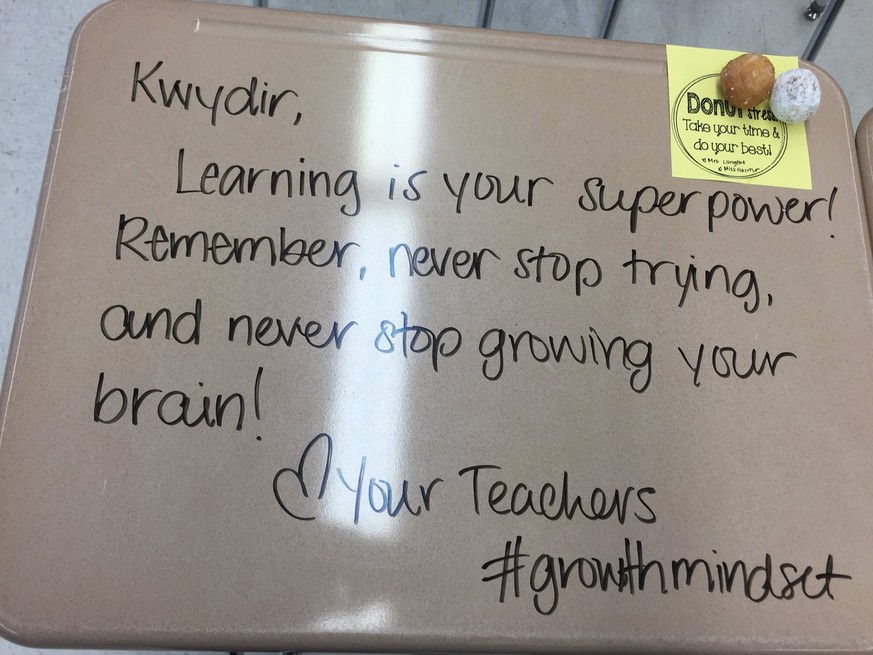 Kwydir,
Learning is your superpower!
Remember, never stop trying,
and never stop growing your
brain!
♡ Your Teachers
#growthmindset
Donut stress
Take your time &
do your best!
Mrs. Langlot